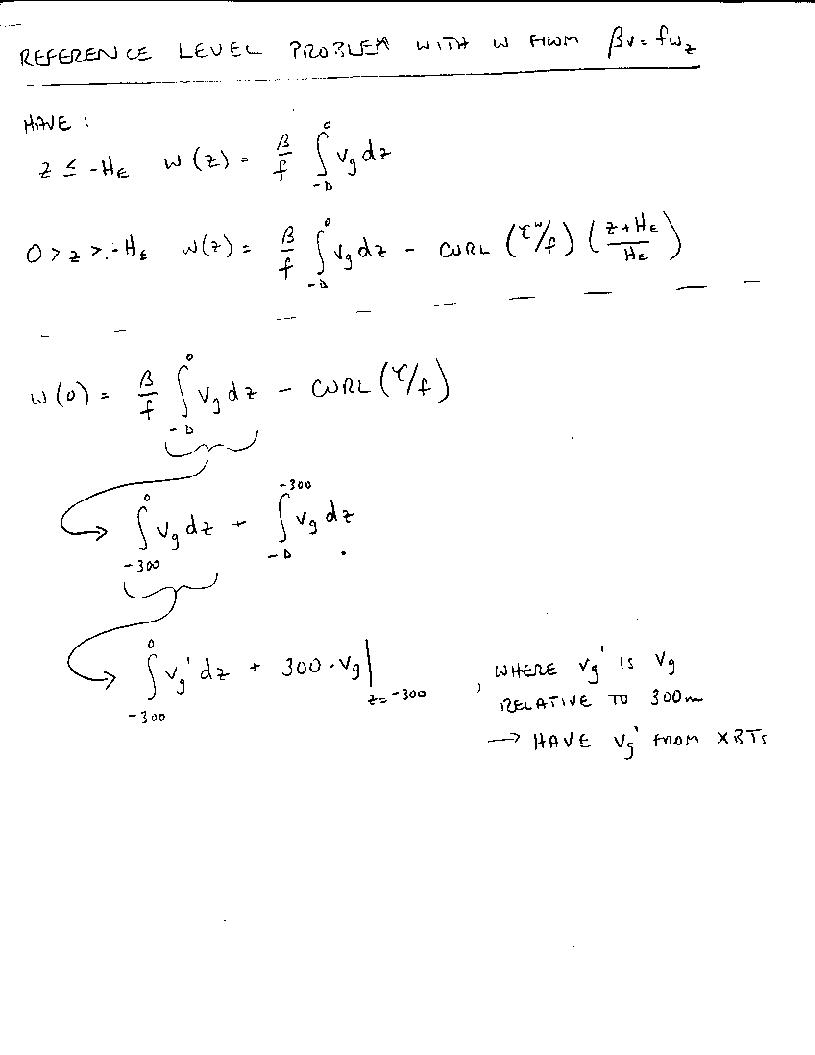 REFERENCE LEVEL PROBLEM WITH W FROM βv = fw_z
HAVE :
z ≤ -H_E   w(z) = β/f ∫_{-D}^{0} v_g dz
0 > z > -H_E   w(z) = β/f ∫_{-D}^{0} v_g dz - CURL (τ^w/f) ((z + H_E)/H_E)
w(0) = β/f ∫_{-D}^{0} v_g dz - CURL (τ/f)
∫_{-300}^{0} v_g dz + ∫_{-D}^{-300} v_g dz
∫_{-300}^{0} v_g' dz + 300 · v_g|_{z=-300} , WHERE v_g' IS v_g
RELATIVE TO 300m
→ HAVE v_g' FROM XBTs